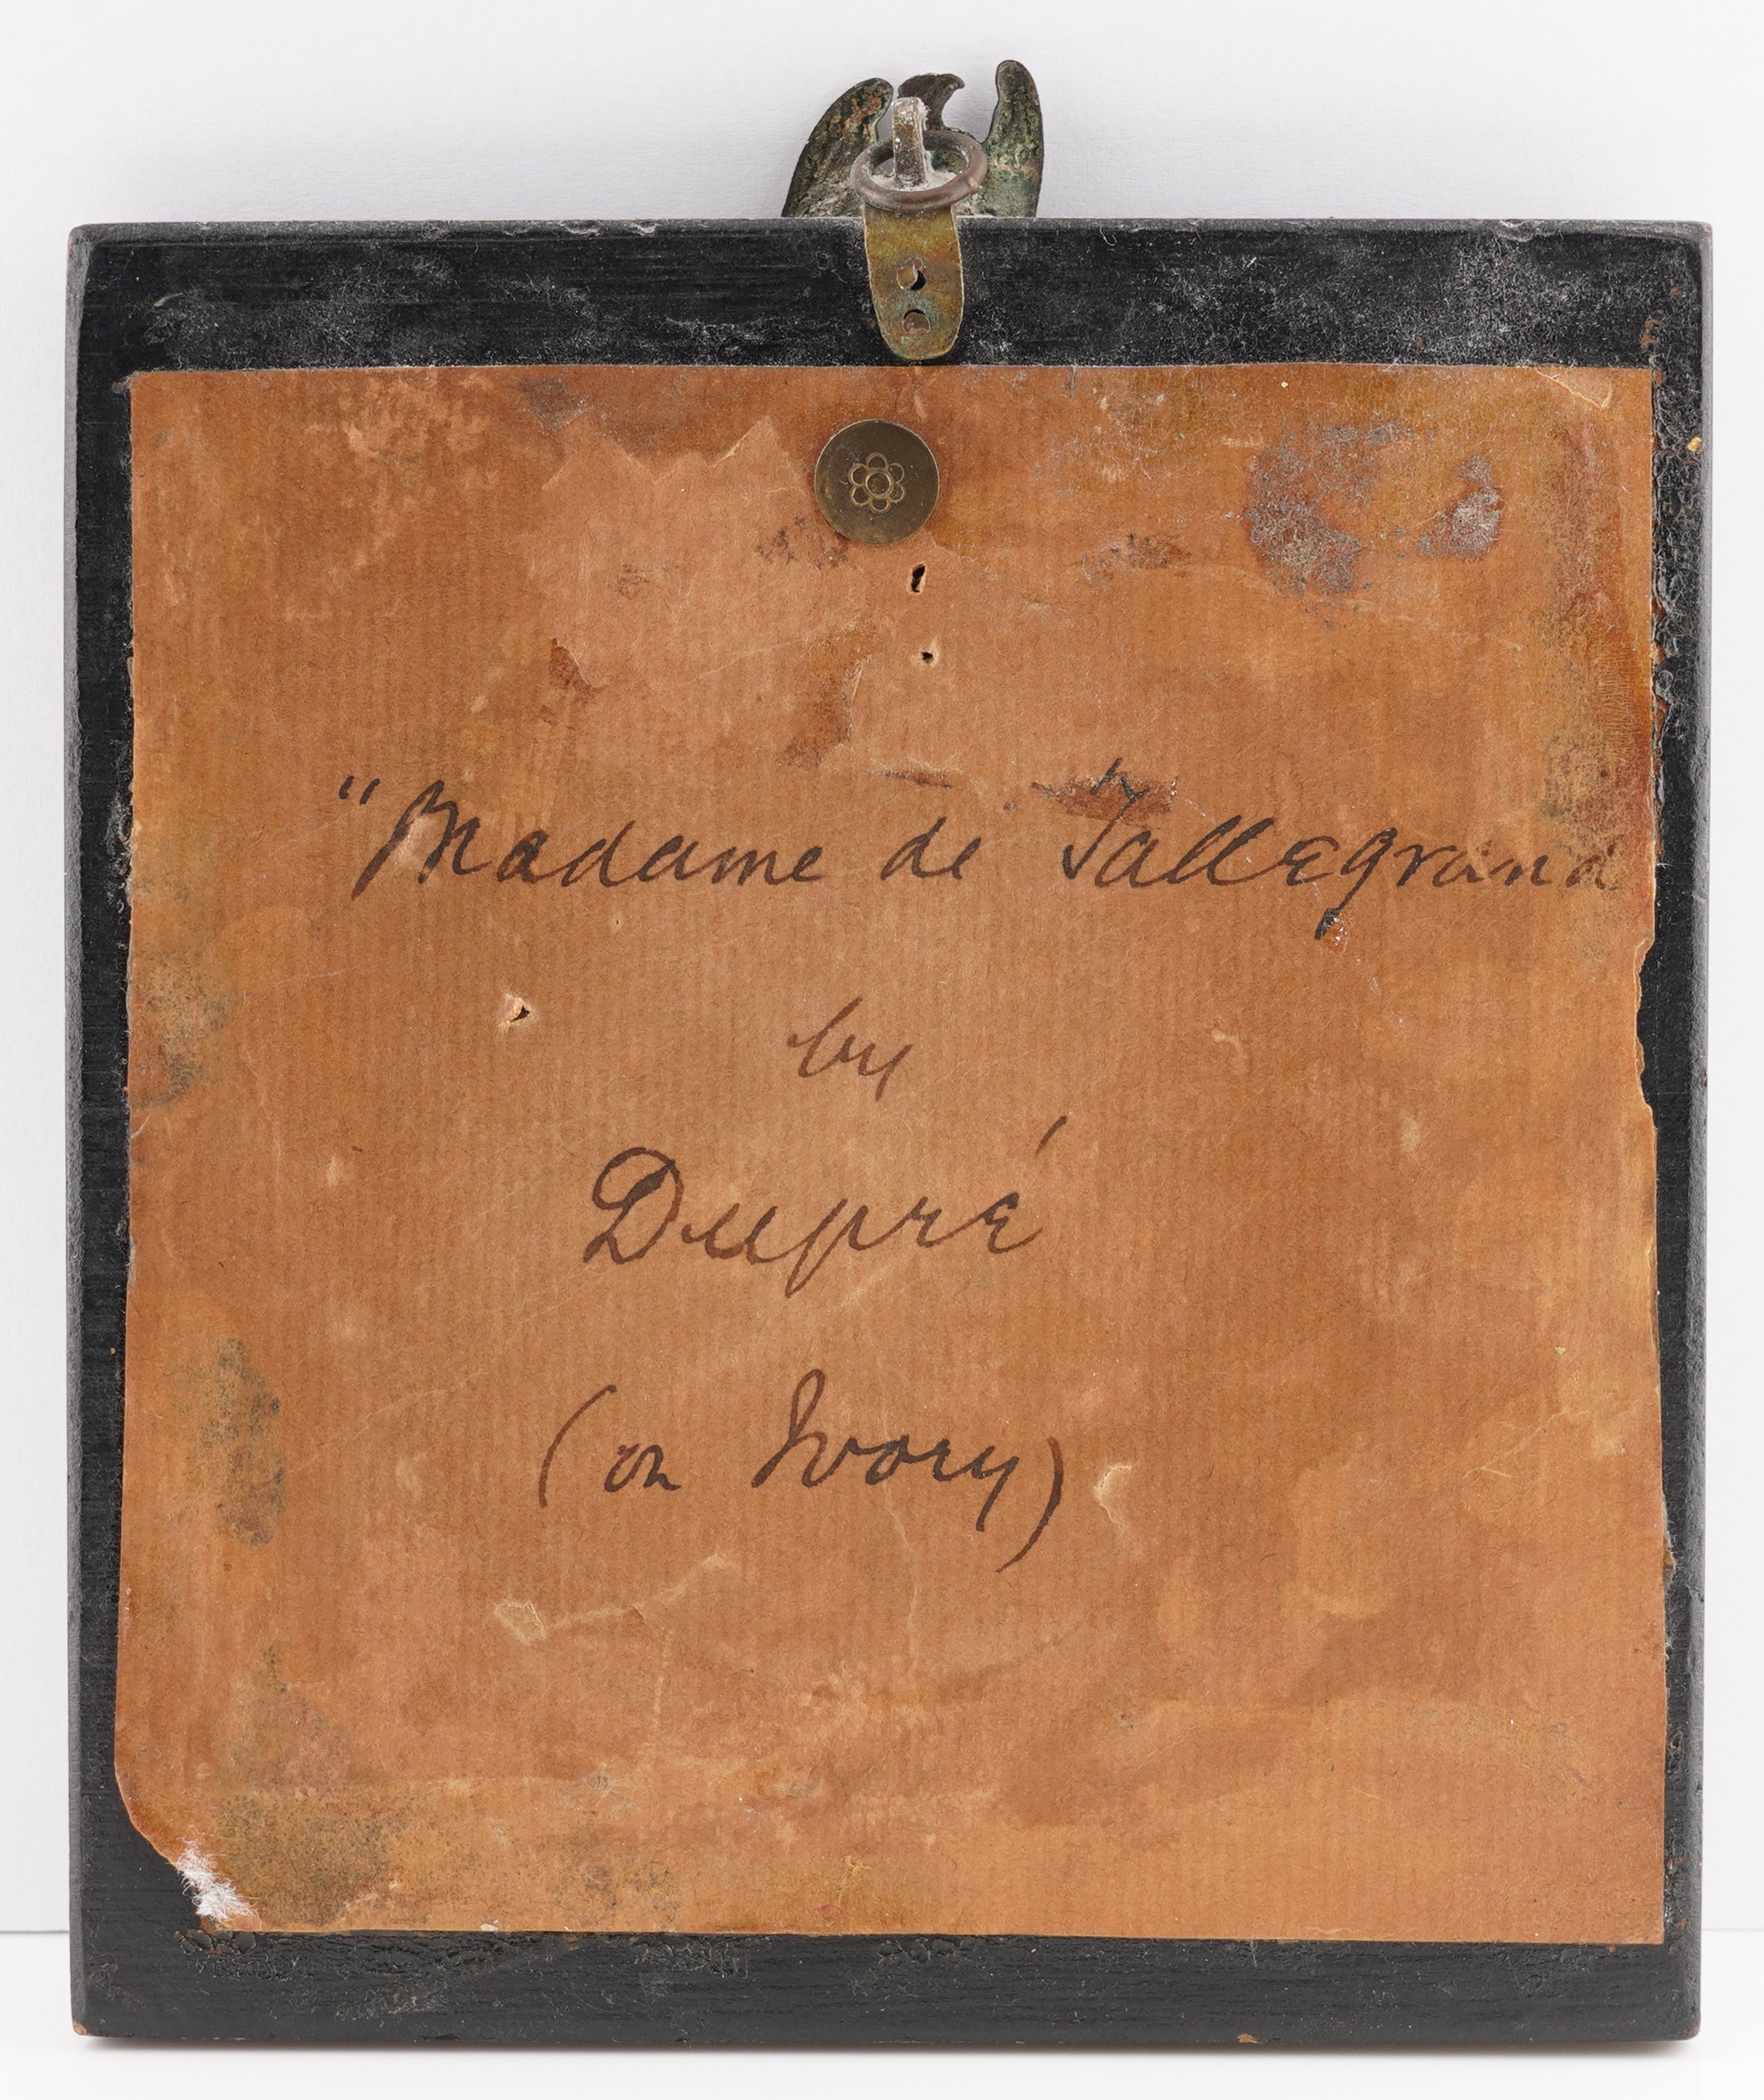 "Madame de Tallegrand
by
Dupré
(on Ivory)